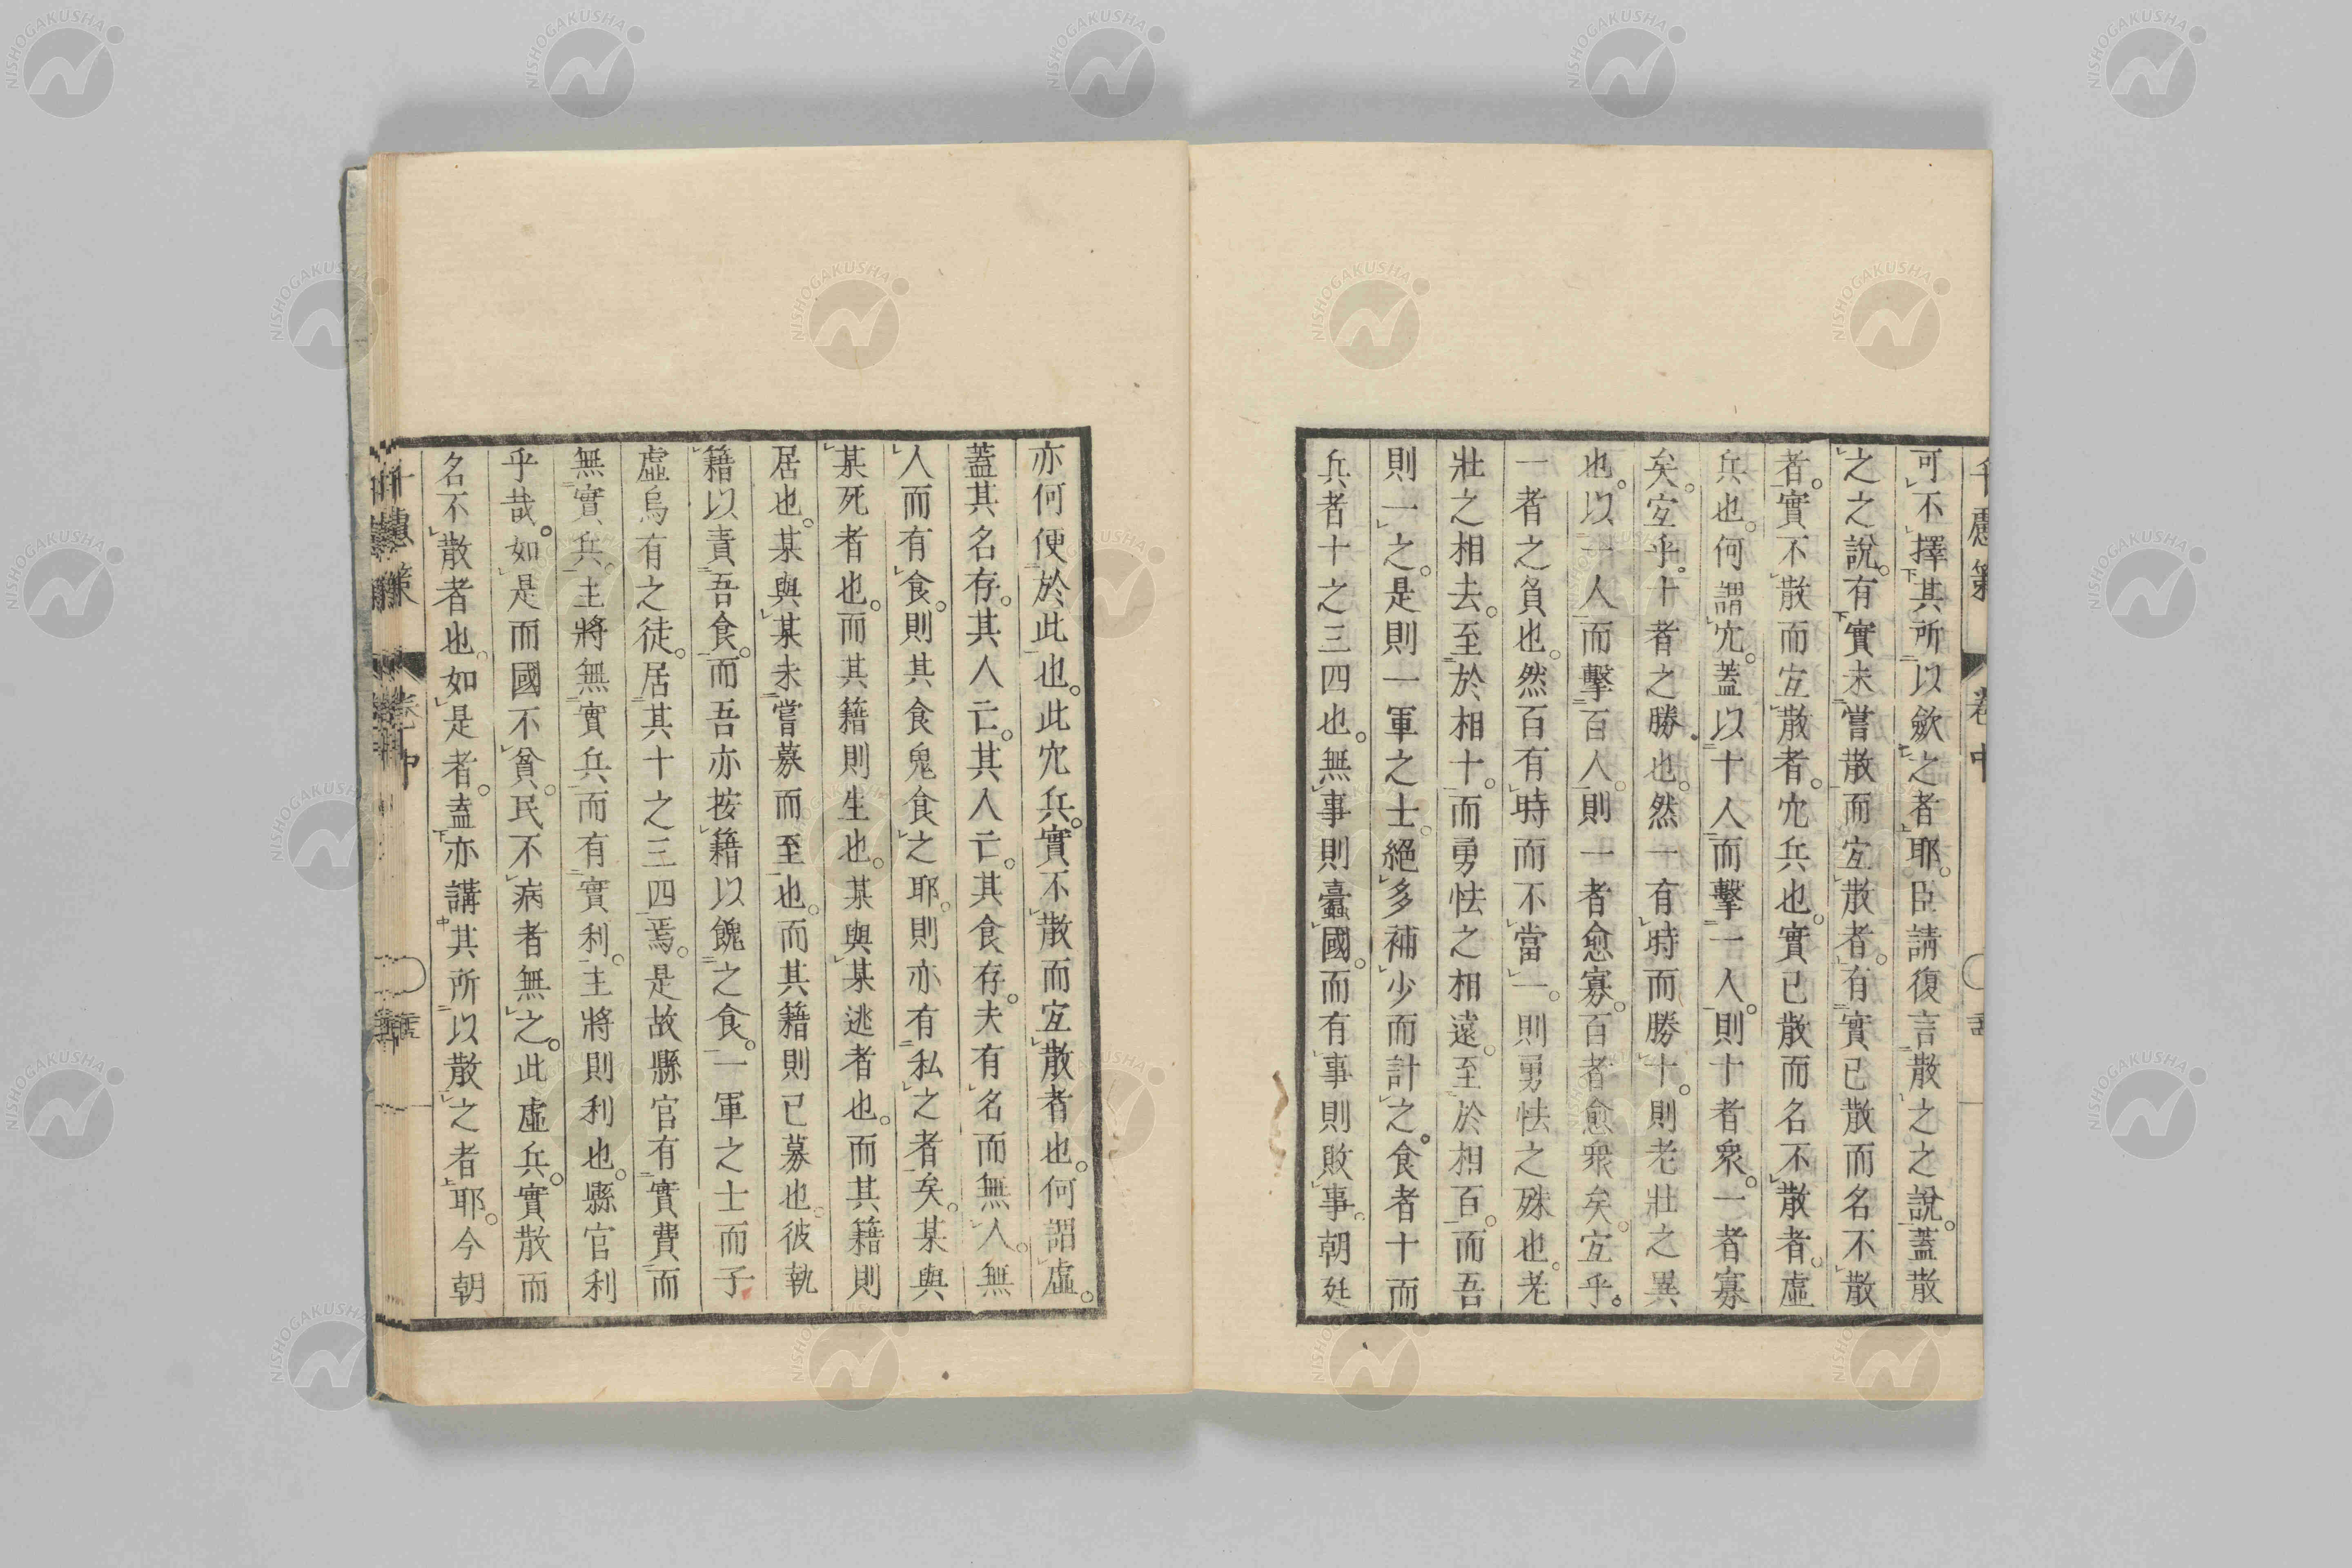 千慮策 卷中
可不擇其所以斂之者耶。臣請復言散之之說。蓋散
之之說。有實未嘗散而宐散者。有實已散而名不散
者。實不散而宐散者。冗兵也。實已散而名不散者。虛
兵也。何謂冗。蓋以十人而擊一人。則十者衆。一者寡
矣。宐乎。十者之勝也。然一有時而勝十。則老壯之異
也。以一人而擊百人。則一者愈寡。百者愈衆矣。宐乎。
一者之負也。然百有時而不當一。則勇怯之殊也。老
壯之相去。至於相十。而勇怯之相遠。至於相百。而吾
則一之。是則一軍之士。絕多補少而計之。食者十而
兵者十之三四也。無事則蠹國。而有事則敗事。朝廷
亦何便於此也。此冗兵。實不散而宐散者也。何謂虛。
蓋其名存。其人亡。其人亡。其食存。夫有名而無人。無
人而有食。則其食鬼食之耶。則亦有私之者矣。某與
某死者也。而其籍則生也。某與某逃者也。而其籍則
居也。某與某未嘗募而至也。而其籍則已募也。彼執
籍以責吾食。而吾亦按籍以餽之食。一軍之士而子
虛烏有之徒。居其十之三四焉。是故縣官有實費而
無實兵。主將無實兵而有實利。主將則利也。縣官利
乎哉。如是而國不貧。民不病者無之。此虛兵。實散而
名不散者也。如是者。盍亦講其所以散之者耶。今朝
千慮策 卷中
NISHOGAKUSHA